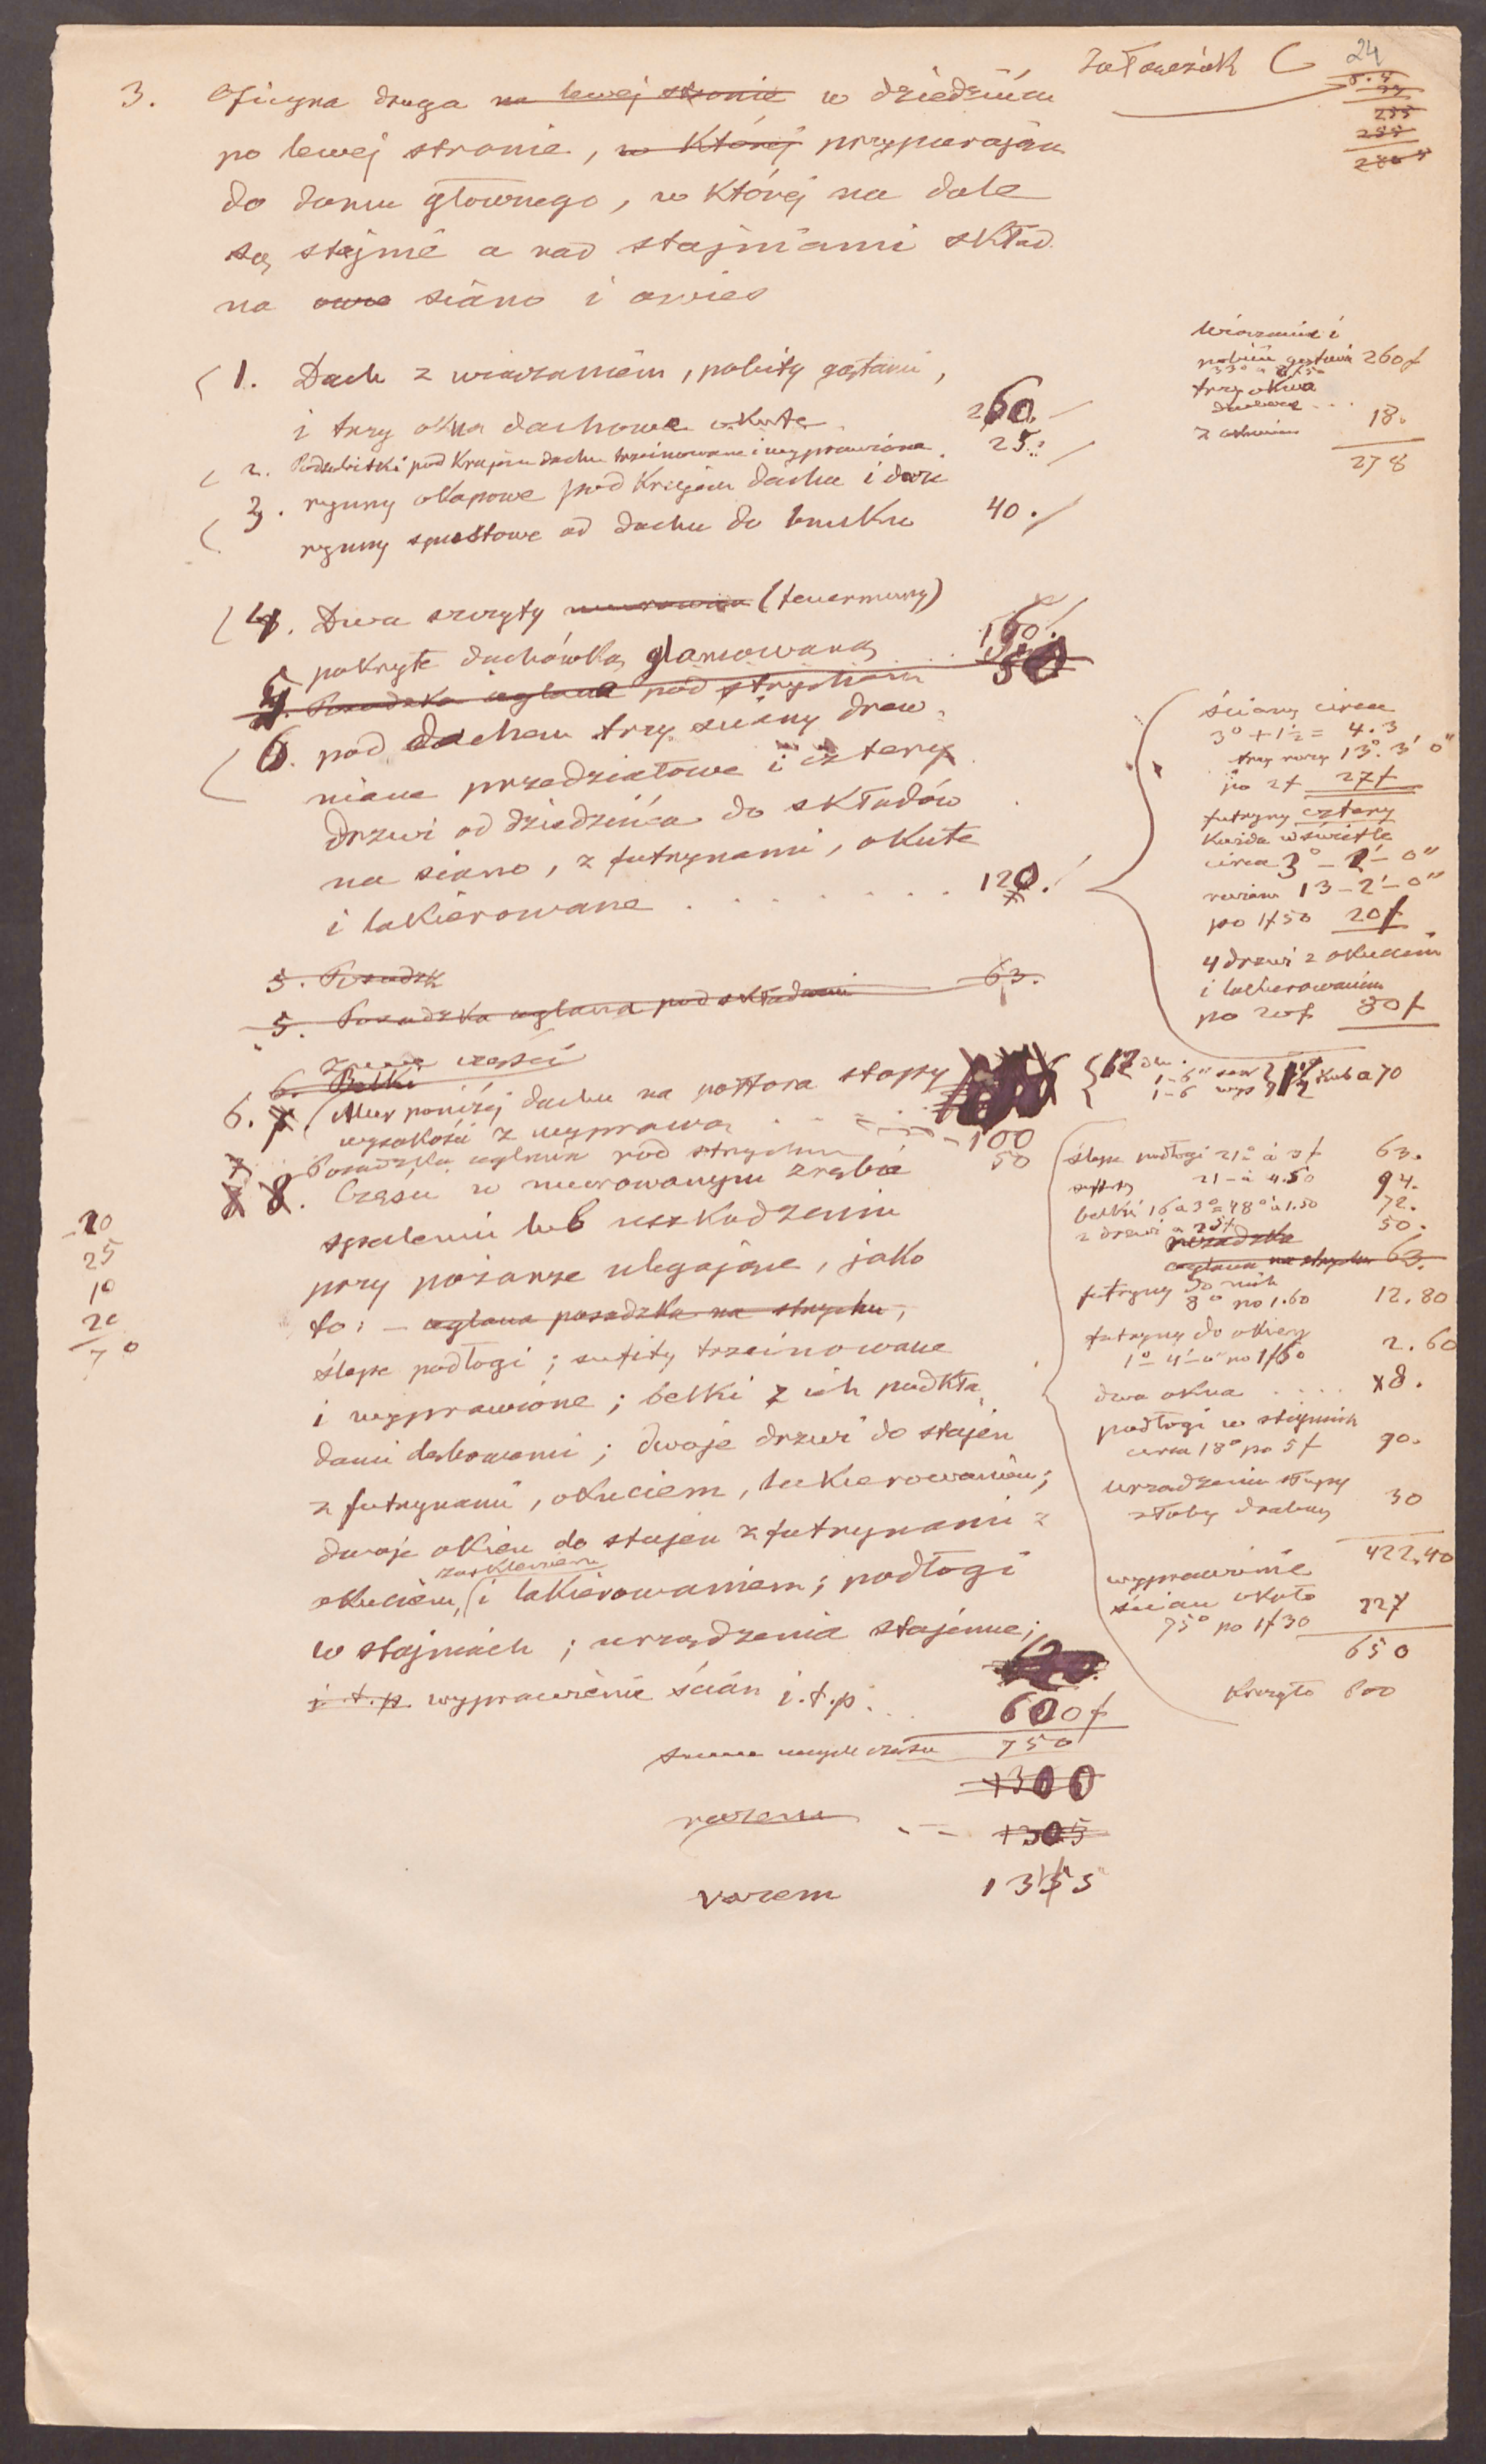 24
3. Oficyna druga na lewej stronie w dziedzińcu
po lewej stronie, w której przypierająca
do domu głównego, w której na dole
są stajnie a nad stajniami skład
na owie siano i owies
1. Dach z wiązaniem, pobity gątami,
i trzy okna dachowe okute 260.
2. Podsubitki pod krajem dachu trzcinowane i wyprawione 25.
3. rynny okapowe pod krajem dachu i dwie
rynny spustowe od dachu do bruku 40.
4. Dwa szczyty murowane (feuermury)
pokryte dachówką glazowaną 160.
Posadzka ceglana pod strychem 50
pod dachem trzy ściany drew-
niane przedziałowe i cztery
drzwi od dziedzińca do składów
na siano, z futrynami, okute
i lakierowane 120.
5. Posadzk
5. Posadzka ceglana pod składami 63.
6. Belki
6. Mur poniżej dachu na półtora stopy
wysokości z wyprawą 100
7 Posadzka ceglana nad strychem 50
8. Części w murowanym zrębie
spaleniu lub uszkodzeniu
przy pożarze ulegające, jako
to: – ceglana posadzka na strychu,
ślepe podłogi; sufity trzcinowane
i wyprawione; belki z ich podkła-
dami dębowemi; dwoje drzwi do stajen
z futrynami, okuciem, lakierowaniem;
dwoje okien do stajen z futrynami z
oszkleniem
okuciem, i lakierowaniem; podłogi
w stajniach; urządzenia stajenne;
i.t.p. wyprawienie ścian i.t.p. 600f
750
1300
razem 1305
razem 1355
20
25
10
20
70
Wiązanie i
pobicie gątami 260f
trzy okna
dachowe
z okuciem 18.
278
ściany circa
3° + 1½ = 4.3
trzy razy 13°.3' 0"
po 2f 27f
futryny cztery
każda w świetle
circa 3° – 2' – 0"
razem 13 – 2' – 0"
po 1f50 20f
4 drzwi z okuciem
i lakierowaniem
po 20f 80f
ślepe podłogi 21° à 3f 63.
sufity 21 – à 4.50 94.
belki 16 à 3° = 48° à 1.50 72.
2 drzwi à 25f 50.
posadzka
ceglana na strychu 63.
futryny do nich
8° po 1.60 12.80
futryny do okien
1° – 4' – 0" po 1f60 2.60
dwa okna 8.
podłogi w stajniach
circa 18° po 5f 90.
urządzenie słupy
żłoby drabiny 30
422.40
wyprawienie
ścian około
75° po 1f30 227
650